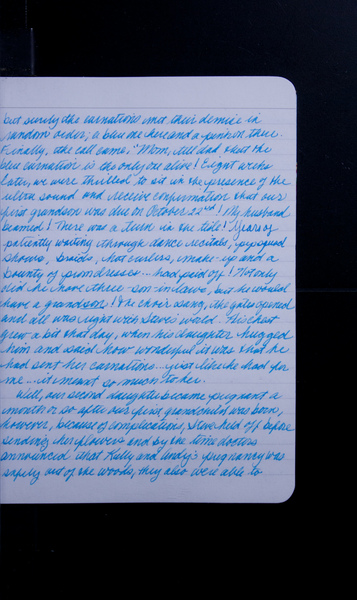 but surely the carnations met their demise in
random order; a blue one here and a pink one there.
Finally, the call came, "Mom, tell dad that the
blue carnation is the only one alive! Eight weeks
later, we were thrilled to sit in the presence of the
ultra sound and receive confirmation that our
first grandson was due on October 22nd! My husband
beamed! There was a turn in the tide! Years of
patiently waiting through dance recitals, pep squad
shows, braids, hot curlers, make-up and a
bounty of prom dresses... had paid off! Not only
did he have three son-in-laws, but he would
have a grandson! The choir sang, the gates opened
and all was right with Steve's world. His chest
grew a bit that day, when his daughter hugged
him and said how wonderful it was that he
had sent her carnations... just like he had for
me... it meant so much to her.
Well, our second daughter became pregnant a
month or so after our first grandchild was born,
however, because of complications, Steve held off before
sending her flowers and by the time doctors
announced that Kelly and Andy's pregnancy was
safely out of the woods, they also were able to